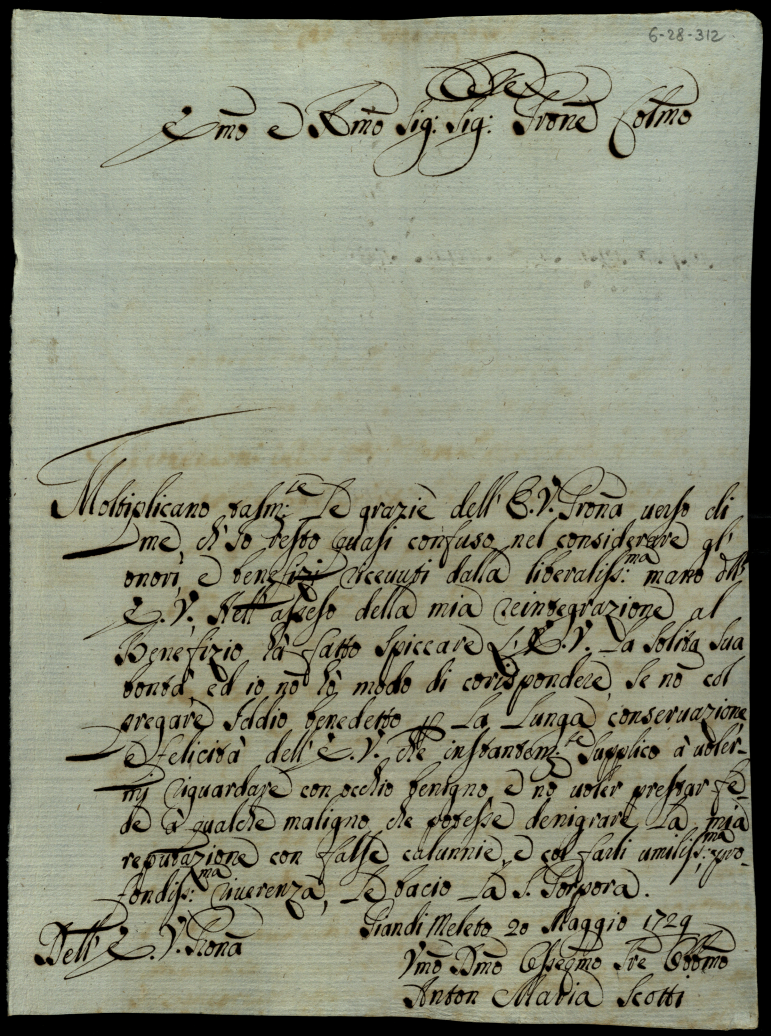 6-28-312
Ecc.mo e R.mo Sig: Sig: Prone Colmo
Moltiplicano talm:te le grazie dell' E.V. Prona verso di
me, ch' Io resto quasi confuso nel considerare gl'
onori, e benefizj ricevuti dalla liberaliss:ma mano dell'
E.V. Nell' asseso della mia reintegrazione al
Benefizio hà fatto spiccare L' E.V. La solita sua
bontà, ed io nõ hò modo di corrispondere, se nõ col
pregare Iddio benedetto p La Lunga conservazione
e felicità dell' E.V. che instantem:te supplico à voler-
mi riguardare con occhio benigno, e nõ voler prestar fe-
de à qualche maligno, che potesse denigrare La mia
reputazione con false calunnie, e col farli umiliss:ma, e pro-
fondiss:ma riverenza, Le bacio La S. Porpora.
Pian di Meleto 20 Maggio 1729
Dell' E.V. Prona
Vmo Dmo Osseqmo Sre Obbmo
Anton Maria Scotti